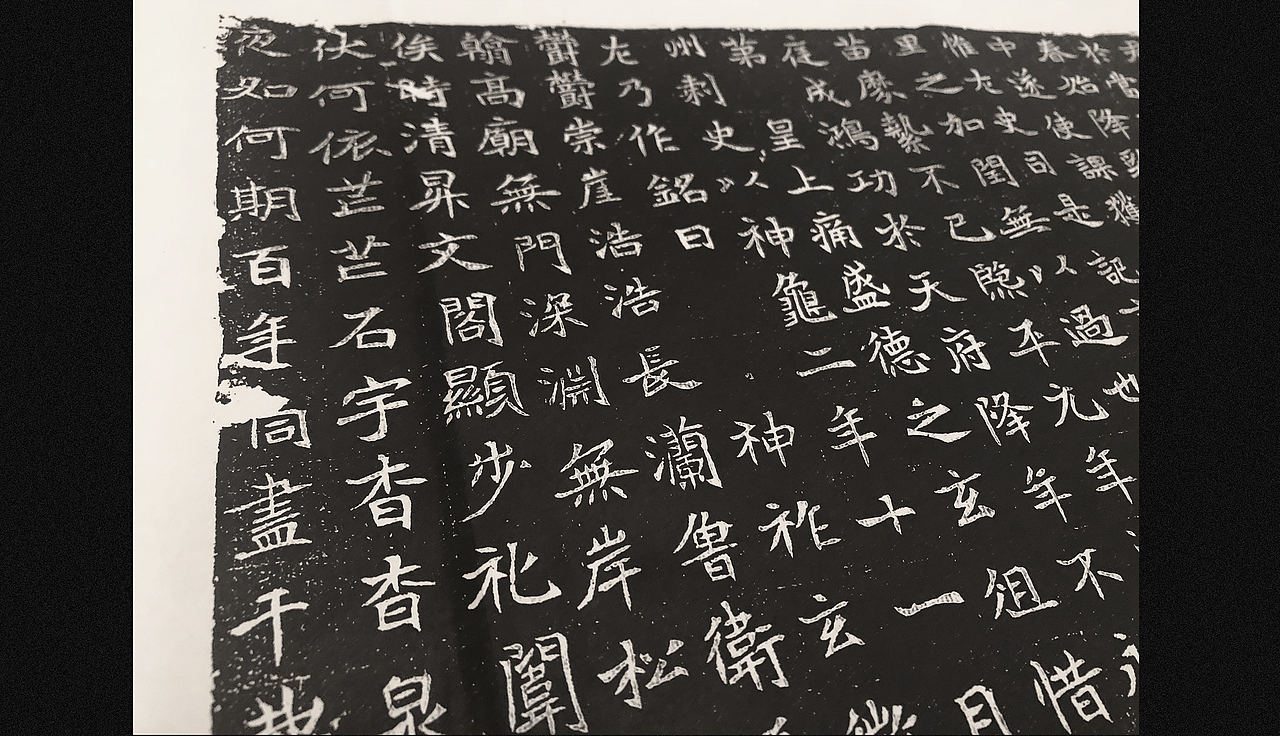 於
春始降
中遂使課
惟左史曰是記
里之加閏無以過也
苗麽縶不已熙平元年
庭成鴻功於天府降年不
第皇上痛盛德之玄俎惜
州刺史以神龜二年十一月
左乃作銘曰神祚玄
欝欝崇崖浩浩長瀾魯衛
翰高廟無門深淵無岸松
俟時清昇文閣顯步礼闈
伏何依芒芒石宇杳杳泉
夜如何期百年同盡千